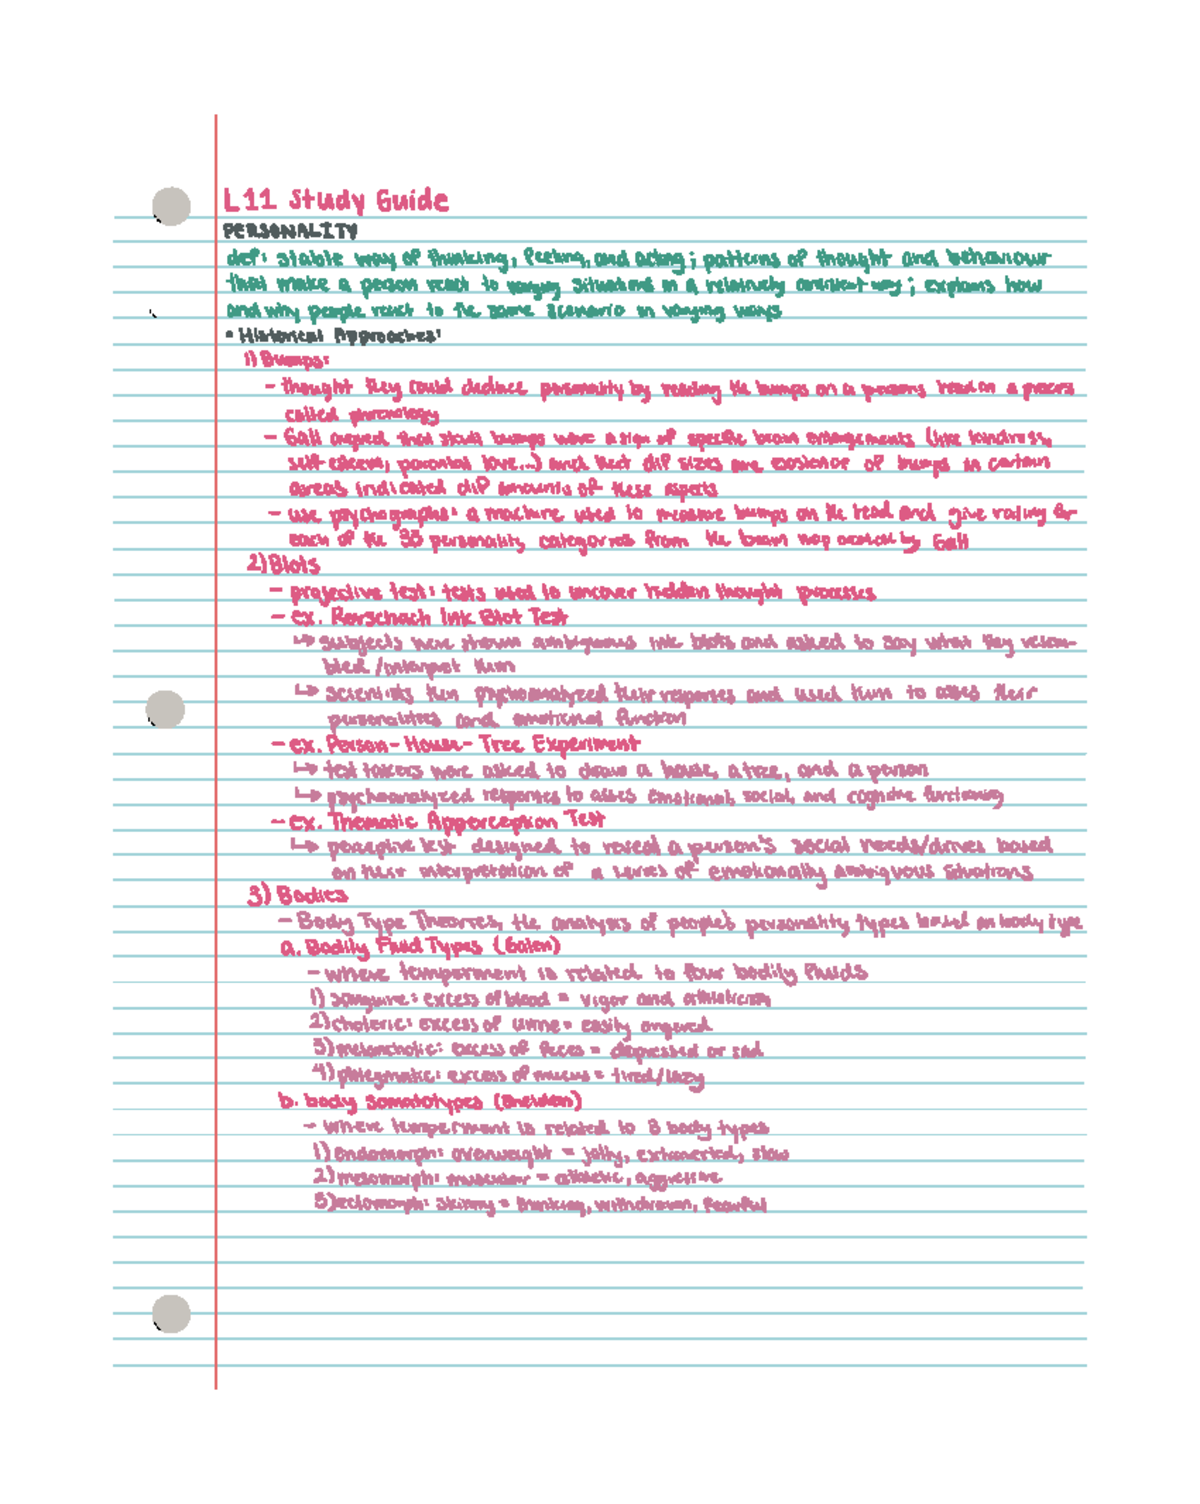 L11 Study Guide
PERSONALITY
def: stable way of thinking, feeling, and acting; patterns of thought and behaviour
that make a person react to varying situations in a relatively consistent way; explains how
and why people react to the same scenario in varying ways
• Historical Approaches:
1) Bumps:
- thought they could deduce personality by reading the bumps on a persons head in a process
called phrenology
- Gall argued that skull bumps were a sign of specific brain enlargements (like kindness,
self-esteem, parental love...) and that diff sizes and existence of bumps in certain
areas indicated diff amounts of these aspects
- use psychographs: a machine used to measure bumps on the head and give rating for
each of the 35 personality categories from the brain map by Gall
2) Blots
- projective test: tests used to uncover hidden thought processes
- ex. Rorschach Ink Blot Test
↳ subjects were shown ambiguous ink blots and asked to say what they resem-
bled / interpret them
↳ scientists then psychoanalyzed their responses and used them to asses their
personalities and emotional function
- ex. Person-House-Tree Experiment
↳ test takers were asked to draw a house, a tree, and a person
↳ psychoanalyzed responses to asses emotional, social, and cognitive functioning
- ex. Thematic Apperception Test
↳ perceptive test designed to reveal a person's social needs/drives based
on their interpretation of a series of emotionally ambiguous situations
3) Bodies
- Body Type Theories, the analysis of people's personality types based on body type
a. Bodily Fluid Types (Galen)
- where temperment is related to four bodily fluids
1) sanguine: excess of blood = vigor and athleticism
2) choleric: excess of urine = easily angered
3) melancholic: excess of feces = depressed or sad
4) phlegmatic: excess of mucus = tired/lazy
b. body somatotypes (Sheldon)
- where temperment is related to 3 body types
1) endomorph: overweight = jolly, extroverted, slow
2) mesomorph: muscular = athletic, aggressive
3) ectomorph: skinny = thinking, withdrawn, fearful